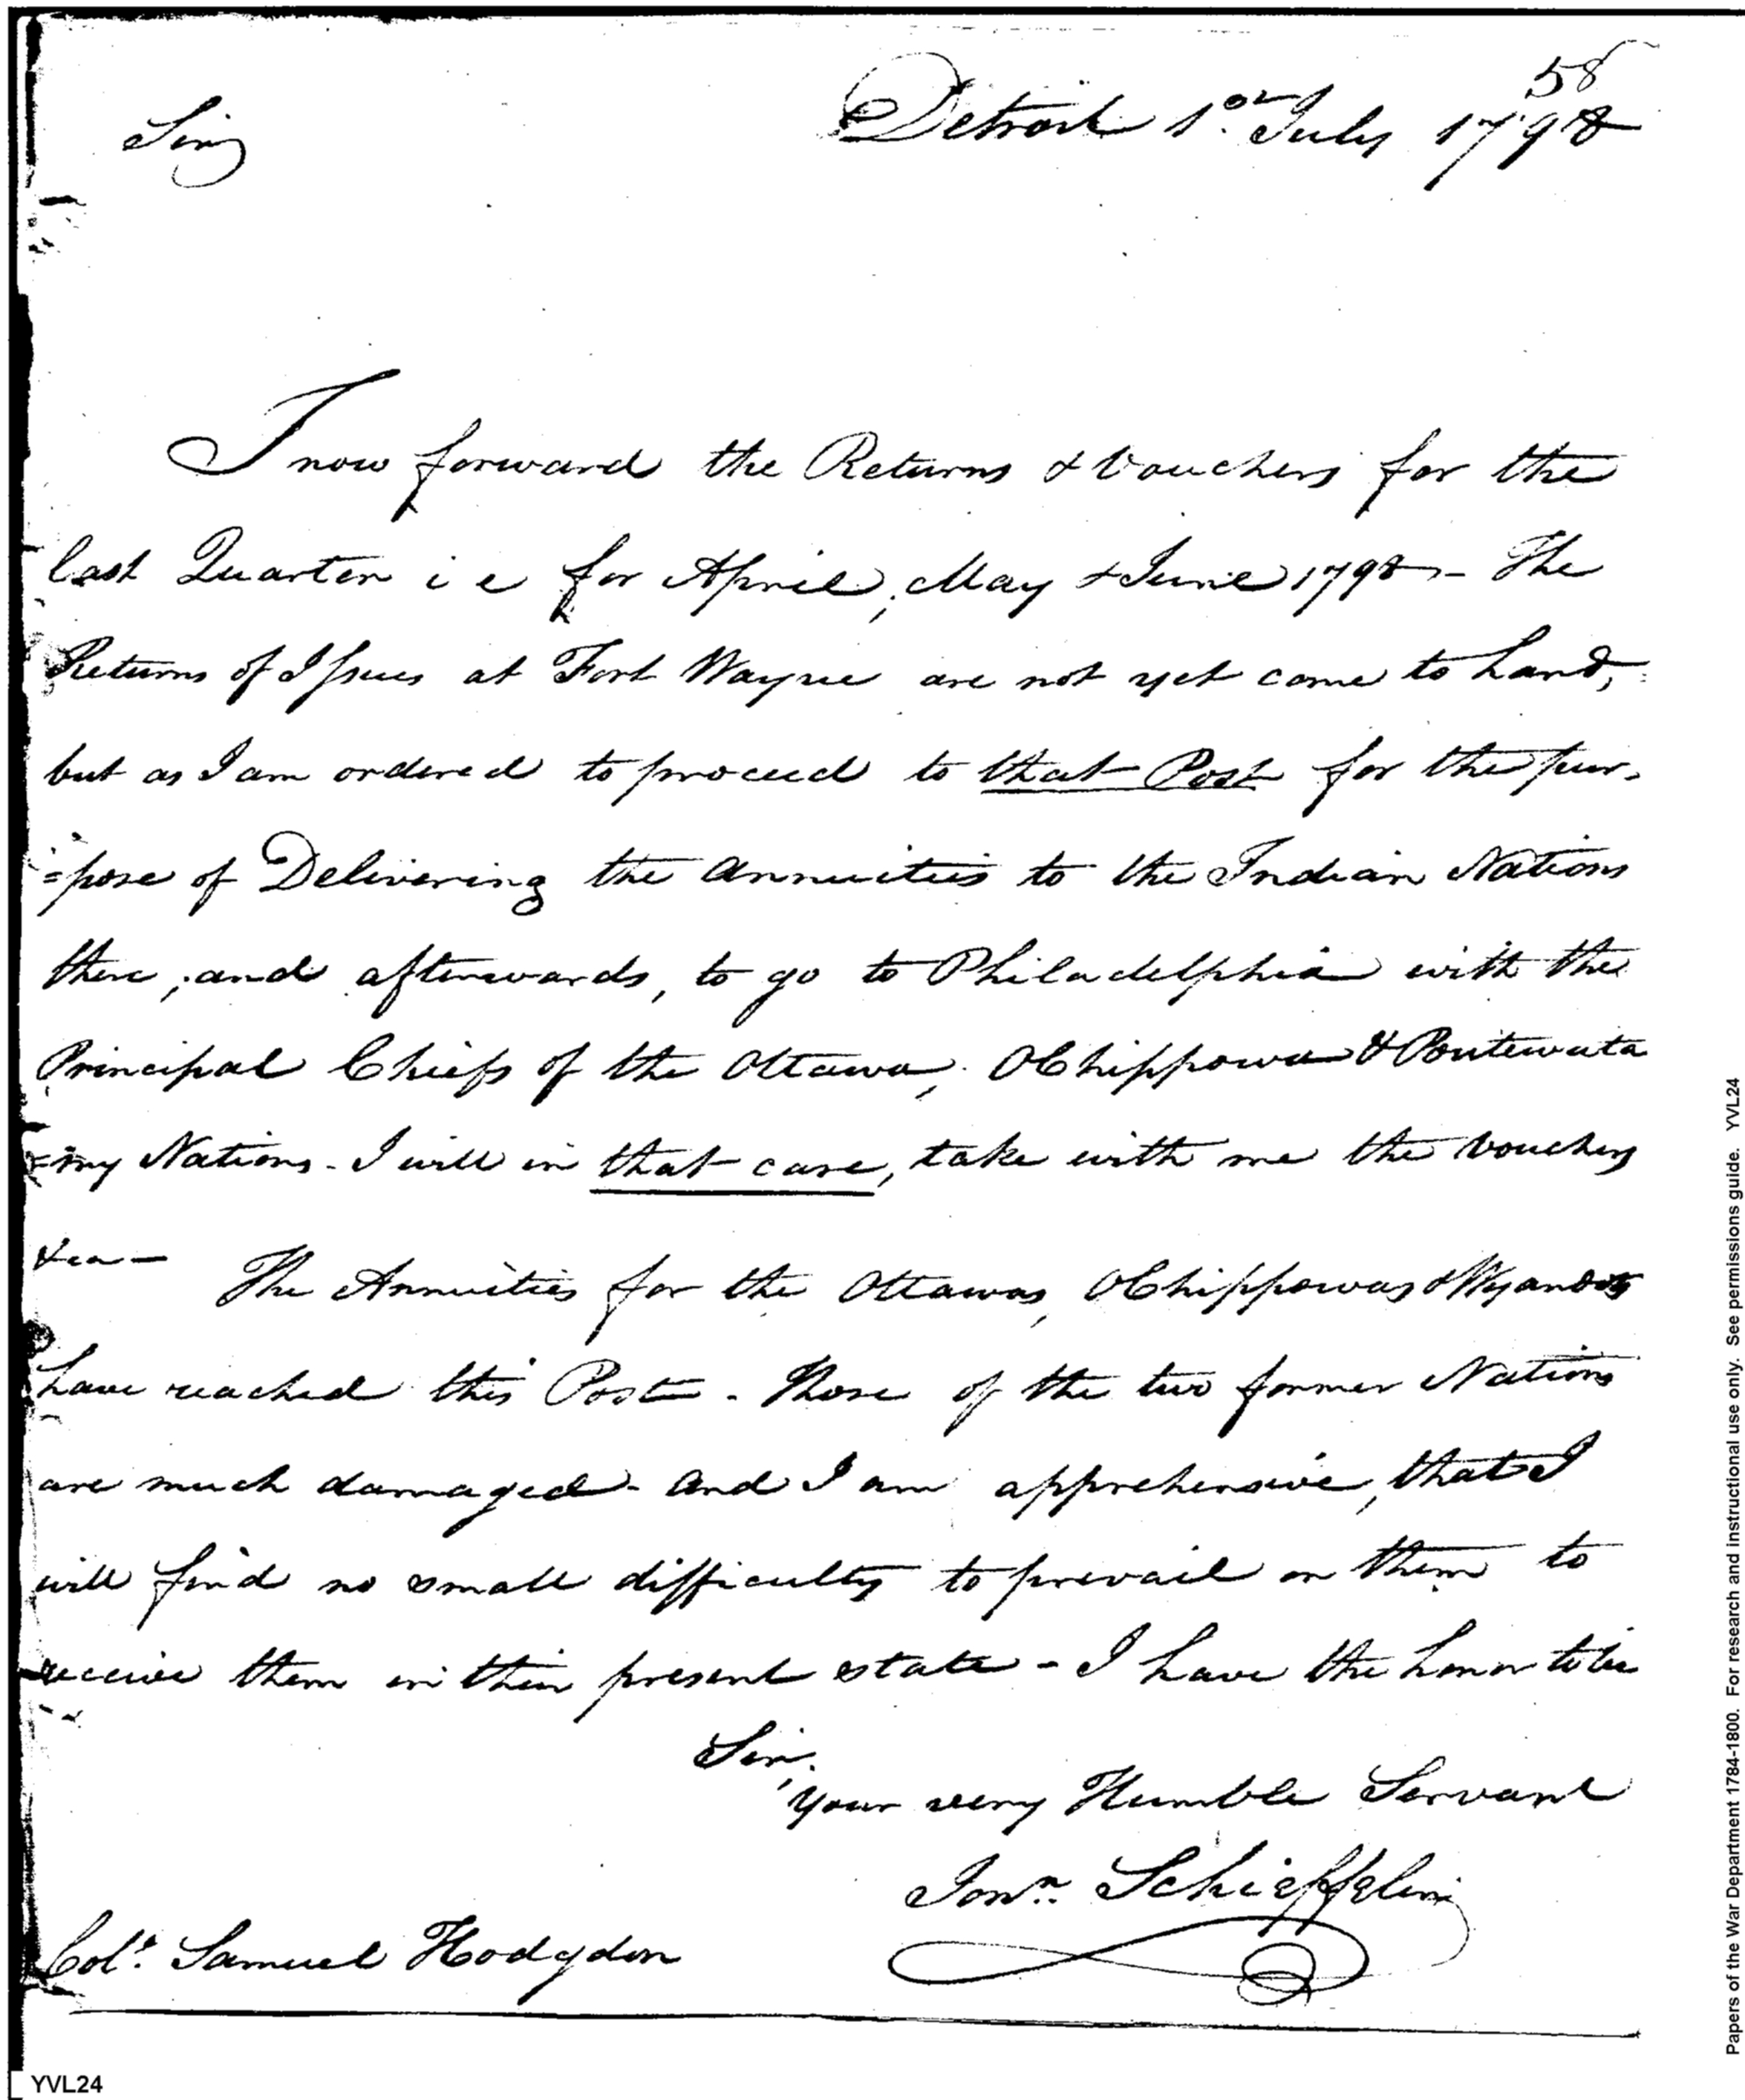 58
Sir,
Detroit 1st July 1798
I now forward the Returns & Vouchers for the
last Quarter i e for April, May & June 1798 - The
Returns of Issues at Fort Wayne are not yet come to hand,
but as I am ordered to proceed to that Post for the pur-
=pose of Delivering the Annuities to the Indian Nations
there, and afterwards, to go to Philadelphia with the
Principal Chiefs of the Ottawa, Chippowa & Poutewata
=my Nations - I will in that case, take with me the Vouchers
&ca -
The Annuities for the Ottawas, Chippowas & Wyandots
have reached this Post - Those of the two former Nations
are much damaged - And I am apprehensive, that I
will find no small difficulty to prevail on them to
receive them in their present state - I have the honor to be
Sir,
Your very Humble Servant
Jonn. Schieffelin
Coll. Samuel Hodgdon
YVL24
Papers of the War Department 1784-1800. For research and instructional use only. See permissions guide. YVL24